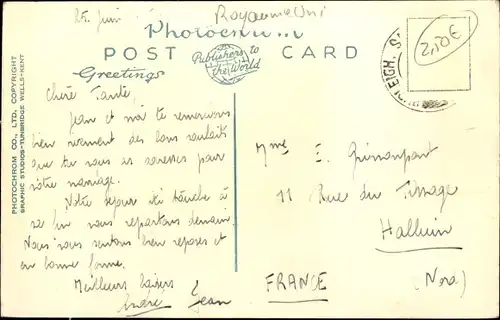 25 Juin
Royaume Uni
Photochrom
POST CARD
Publishers to
the World
Greetings
2,50€
PHOTOCHROM CO., LTD., COPYRIGHT
GRAPHIC STUDIOS-TUNBRIDGE WELLS-KENT
Chère Tante,
Jean et moi te remercions
bien vivement des bons souhaits
que tu nous as adressés pour
notre mariage.
Notre séjour ici touche à
sa fin nous repartons demain.
Nous nous sentons bien reposés et
en bonne forme.
Meilleurs baisers
André Jean
Mme E.
11 Rue du Tissage
Halluin
(Nord)
FRANCE